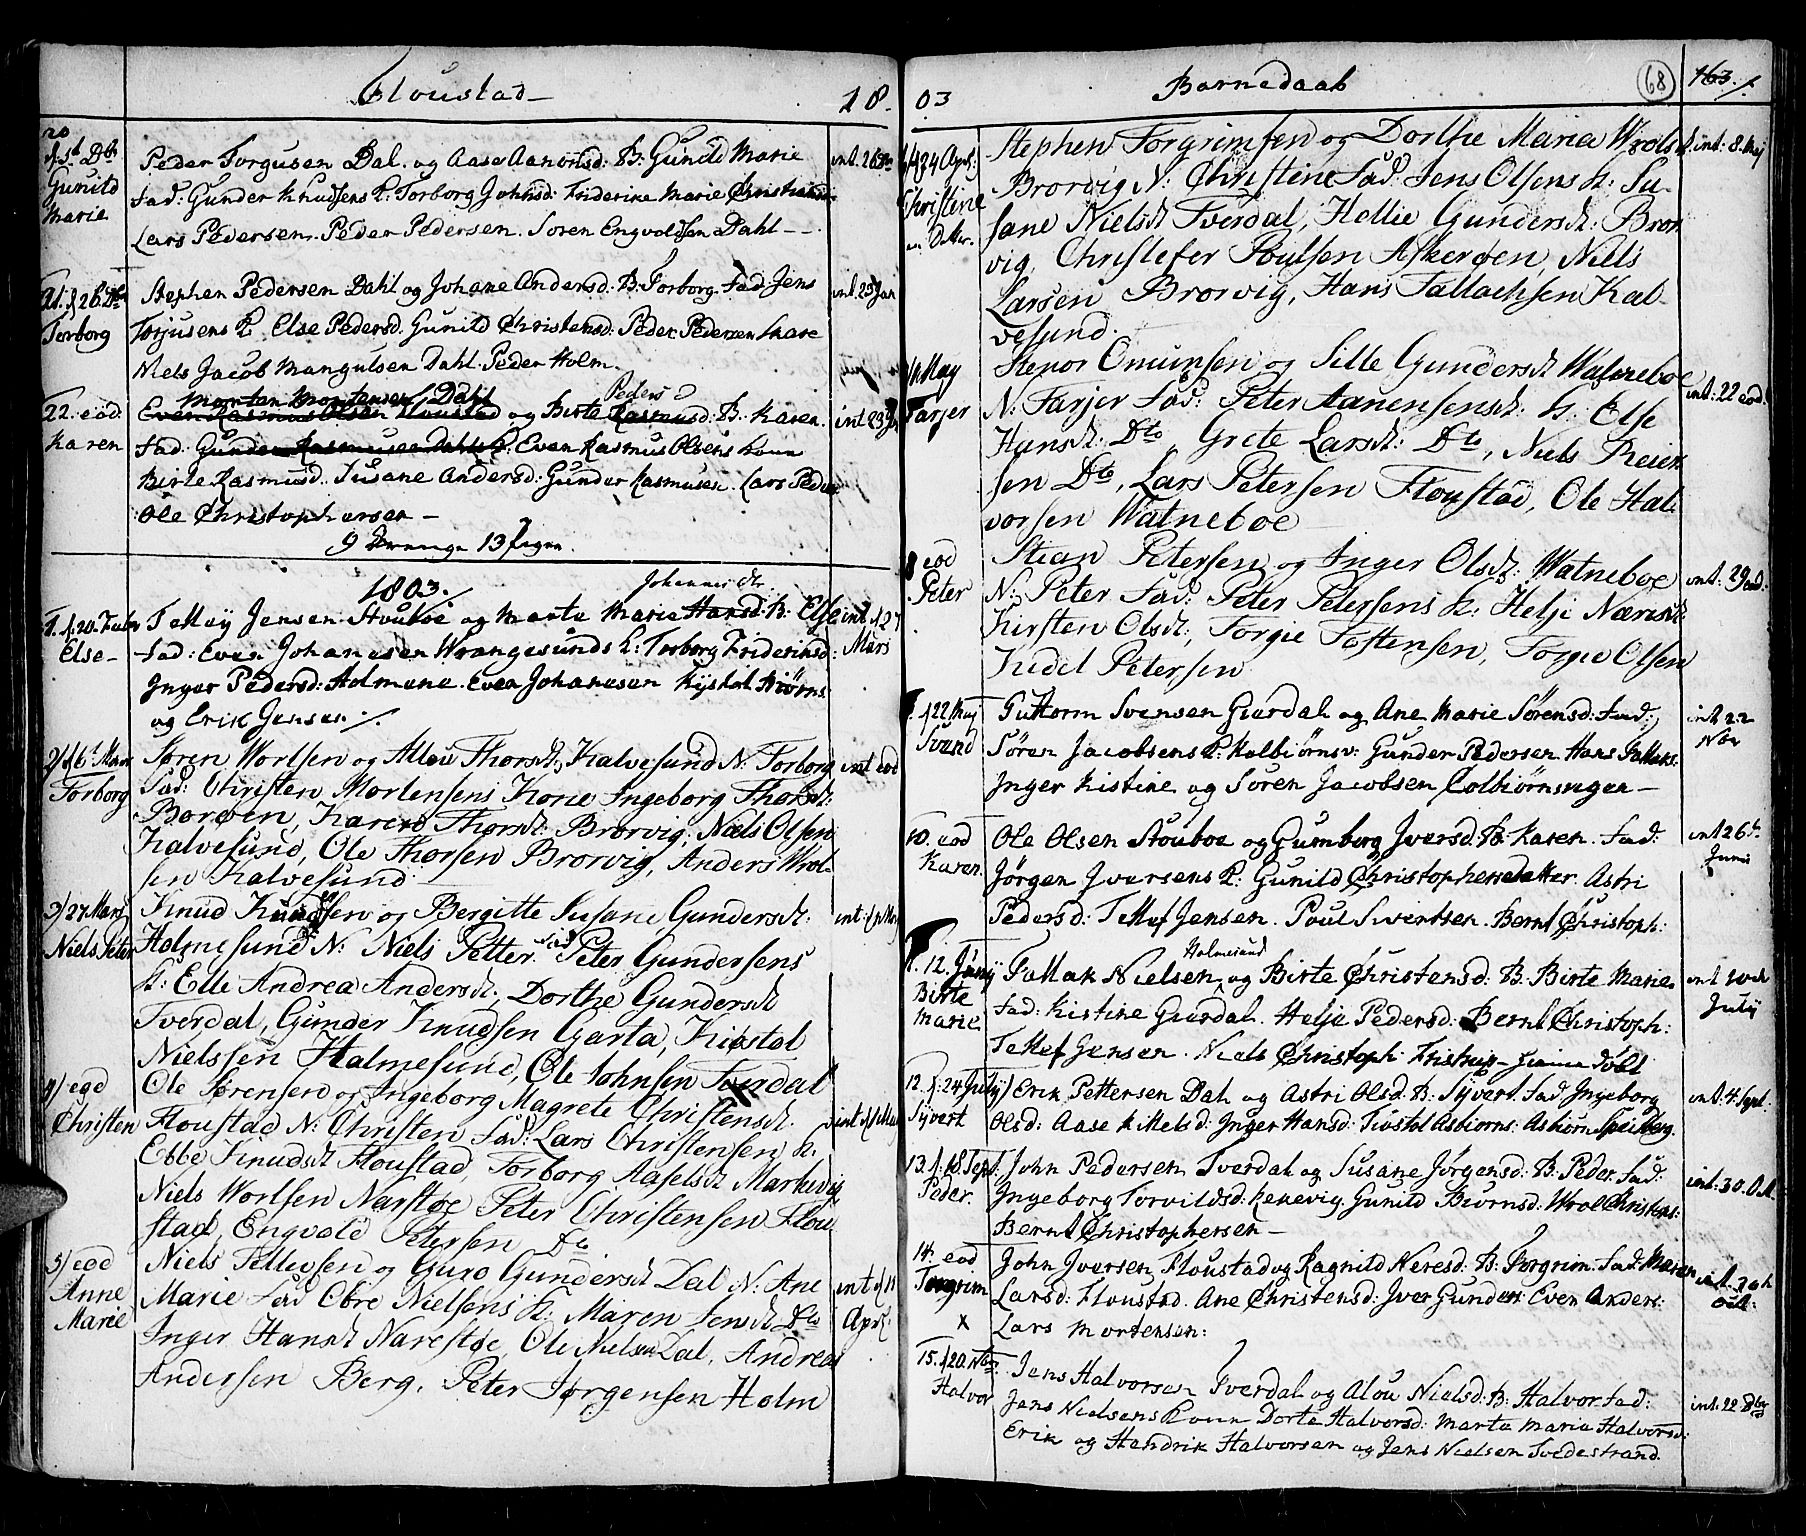 Floustad
18.
20
Gunild
Marie
Peder Torgusen Dal. og Aase Aanonsd: B: Gunild Marie
Fad: Gunder Knudsens K: Torborg Johnsd: Friderike Marie
Lars Pedersen. Peder Pedersen. Soren Engvoldsen Dahl
int. 26
21. f 26 Dbr
Torborg
Stephen Pedersen Dahl og Johane Andersd: B: Torborg. Fad: Jens
Torjusens K. Else Pedersd. Gunild Christensd: Peder Pedersen
Jacob Mangulsen Dahl. Peder Holm.
int. 23 Jan
22. eod:
Karen
Morten Mortensen Dahl
Peders
og Birte Rasmusd: B: Karen.
Fad: Even Rasmus Olsens Kone
Birte Rasmusd. Susane Andersd: Gunder Rasmusen. Lars Peders
Ole Christophersen
9 Drenge 13 Piger.
int 23 Jan
1803.
Johannis dtr
1. f. 20. Febr
Else
Tellef Jensen Stouboe og Marte Marie Hansd: B: Else
Fad: Even Johanesen Wrangesunds K: Torborg Friderichsd:
Inger Pedersd: Holmene. Even Johanesen Kystol Biørns:
og Erik Jensen
int f 27
Mars
2/ f 6t Mars
Torborg
Søren Wortsen og Allou Thorsdt: Kalvesund N: Torborg
Fad: Christen Mortensens Kone Ingeborg Thorsdt:
Borøen, Karen Thorsdt: Brorvig, Niels Olsen
Kalvesund, Ole Thorsen Brorvig, Anders Wrol
sen Kalvesund
int eod
3/ 27 Mars
Niels Peter
Knud Knudsen og Bergitte Susane Gundersdt:
Holmesund N: Niels Petter Fad Peter Gundersens
K: Elle Andrea Andersdt:, Dorthe Gundersdt
Tverdal, Gunder Knudsen Garta, Kiøstol
Nielssen Holmesund, Ole Johnsen Tverdal
int: f May
4/ egd
Christen
Ole Sørensen og Ingeborg Magrete Christensdt.
Floustad N: Christen Fad: Lars Christensen K:
Ebbe Knudsdt Floustad, Torborg Aaselsdt Markevig
Niels Wortsen Narstøe Peter Christensen Flou
stad, Engvold Petersen Dto
int f May
5/ eod
Anne
Marie
Niels Tellevsen og Guro Gundersdt Dal N: Ane
Marie Fad Obre Nielsens K: Maren Jensdt Dto
Inger Hansdt Narestøe, Ole Nielsen Dal, Andreas
Andersen Berg, Peter Jørgensen Holm
int f
April
03
Barnedaab
68
163
24 April:
Christine
Stephen Torgrimsen og Dorthe Maria Wrolsdt
Brorvig N: Christine Fad: Jens Olsens K: Su
sane Nielsdt Tverdal, Hellie Gundersdt: Bror
vig, Christefer Poulsen Askerøen, Niels
Larsen Brorvig, Hans Tallachsen Kal
vesund.
int: 8 Maj
May
Tarjer
Stenor Omunsen og Sille Gundersdt Watneboe
N: Tarjer Fad: Peter Aanensens K: Else
Hansdt: Dto, Grete Larsdt: Dto, Niels Reier
sen Dto, Lars Petersen Floustad, Ole Hal
vorsen Watneboe
int: 22 eod
8 eod
Peter
Stian Petersen og Inger Olsdt: Watneboe
N: Peter Fad: Peter Petersens K: Helje Næresdt:
Kirsten Olsdt:, Torgie Tostensen, Torgie Olsen
Kidel Petersen
f 22 Maj
Svend
Guttorm Svensen Gierdal og Ane Marie Sørensd: Fad:
Søren Jacobsens K. Kolbiørnsv: Gunder Pedersen. Hans Tallaks:
Inger Kistine og Soren Jacobsen Colbiørnsvigen
int 22
Nov
10. eod
Karen
Ole Olsen Stouboe og Gumborg Iversd: B: Karen. Fad:
Jørgen Iversens K: Gunild Christophersdatter. Astri
Pedersd: Tellef Jensen. Poul Sivertsen. Bernt Christoph:
int 26t
Junii
12. Junij
Birte
Marie
Holmesund
Tallak Nielsen og Birte Christensd: B: Birte Marie
Fad: Kistine Gierdal. Helje Pedersd: Bernt Christoph:
Tellef Jensen. Niels Christoph:
int 10de
July
12. f: 24 July
Syvert
Erik Pettersen Dal og Astri Olsd: B: Syvert. Fad Ingeborg
Olsd: Aase Nielsd: Inger Hansd: Tiøstol Asbiorns: Asbiørn
int. 4 Sept.
13. f. 18. Sept:
Peder.
John Pedersen Tverdal og Susane Jørgensd: B: Peder. Fad:
Ingeborg Torvildsd: Kenevig. Gunild Biørnsd: Wrol Christens:
Bernt Christophersen
int. 30. Oct.
14. eod
Torgrim
x
John Iversen Floustad og Ragnild Neresd: B: Torgrim. Fad: Maren
Larsd: Floustad. Ane Christensd: Iver Gunders: Even Anders:
Lars Mortensen:
int. 30
Oct.
15. f 20. Nbr.
Halvor
Jens Halvorsen Tverdal og Alou Nielsd: B: Halvor Fad:
Jens Nielsens Kone Dorte Halvorsd: Marta Maria Halvorsd:
Erik og Hendrik Halvorsen og Jens Nielsen Tvedestrand.
int. 22 Dbr